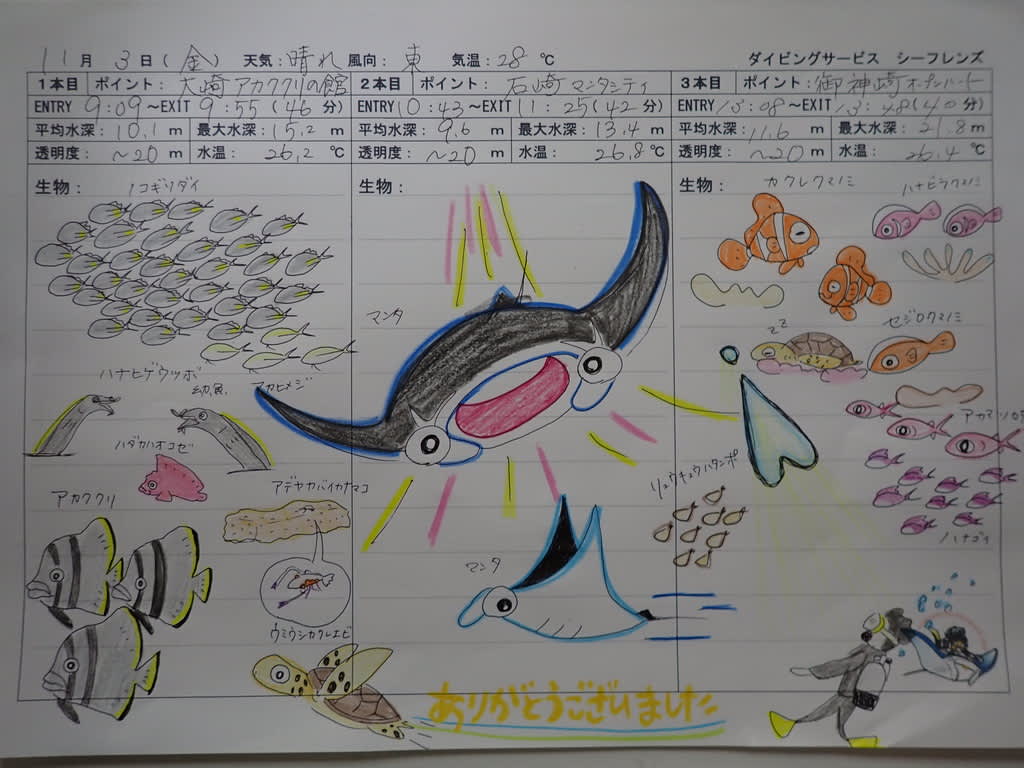 11月 3日(金) 天気:晴れ 風向:東 気温:28℃ ダイビングサービス シーフレンズ
1本目 ポイント:大崎アカククリの館
ENTRY 9:09~EXIT 9:55(46分)
平均水深:10.1m 最大水深:15.2m
透明度:~20m 水温:26.2℃
生物:
ノコギリダイ
ハナヒゲウツボ
幼魚
アカヒメジ
ハダカハオコゼ
アカククリ
アデヤカバイカナマコ
ウミウシカクレエビ
2本目 ポイント:石崎マンタシティ
ENTRY 10:43~EXIT 11:25(42分)
平均水深:9.6m 最大水深:13.4m
透明度:~20m 水温:26.8℃
生物:
マンタ
マンタ
3本目 ポイント:御神崎オープンハート
ENTRY 13:08~EXIT 13:48(40分)
平均水深:11.6m 最大水深:21.8m
透明度:~20m 水温:26.4℃
生物:
カクレクマノミ
ハナビラクマノミ
zz
セジロクマノミ
アカマツカサ
リュウキュウハタンポ
ハナゴイ
ありがとうございました